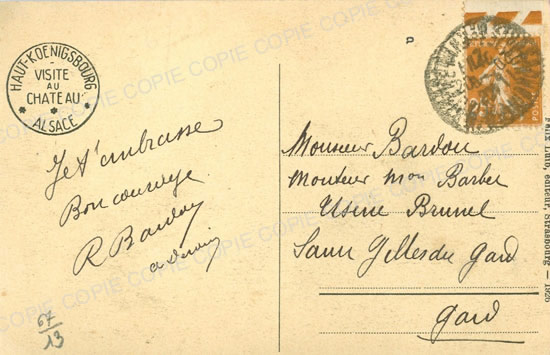 HAUT-KOENIGSBOURG
VISITE
AU
CHATEAU
ALSACE
Je t'embrasse
Bon courage
R Bardou
67/13
Monsieur Bardou
Monteur Mon Barbet
Usine Brunel
Saint Gilles du Gard
Gard
Félix Luib, éditeur, Strasbourg — 1926
COPIE COPIE COPIE COPIE COPIE COPIE